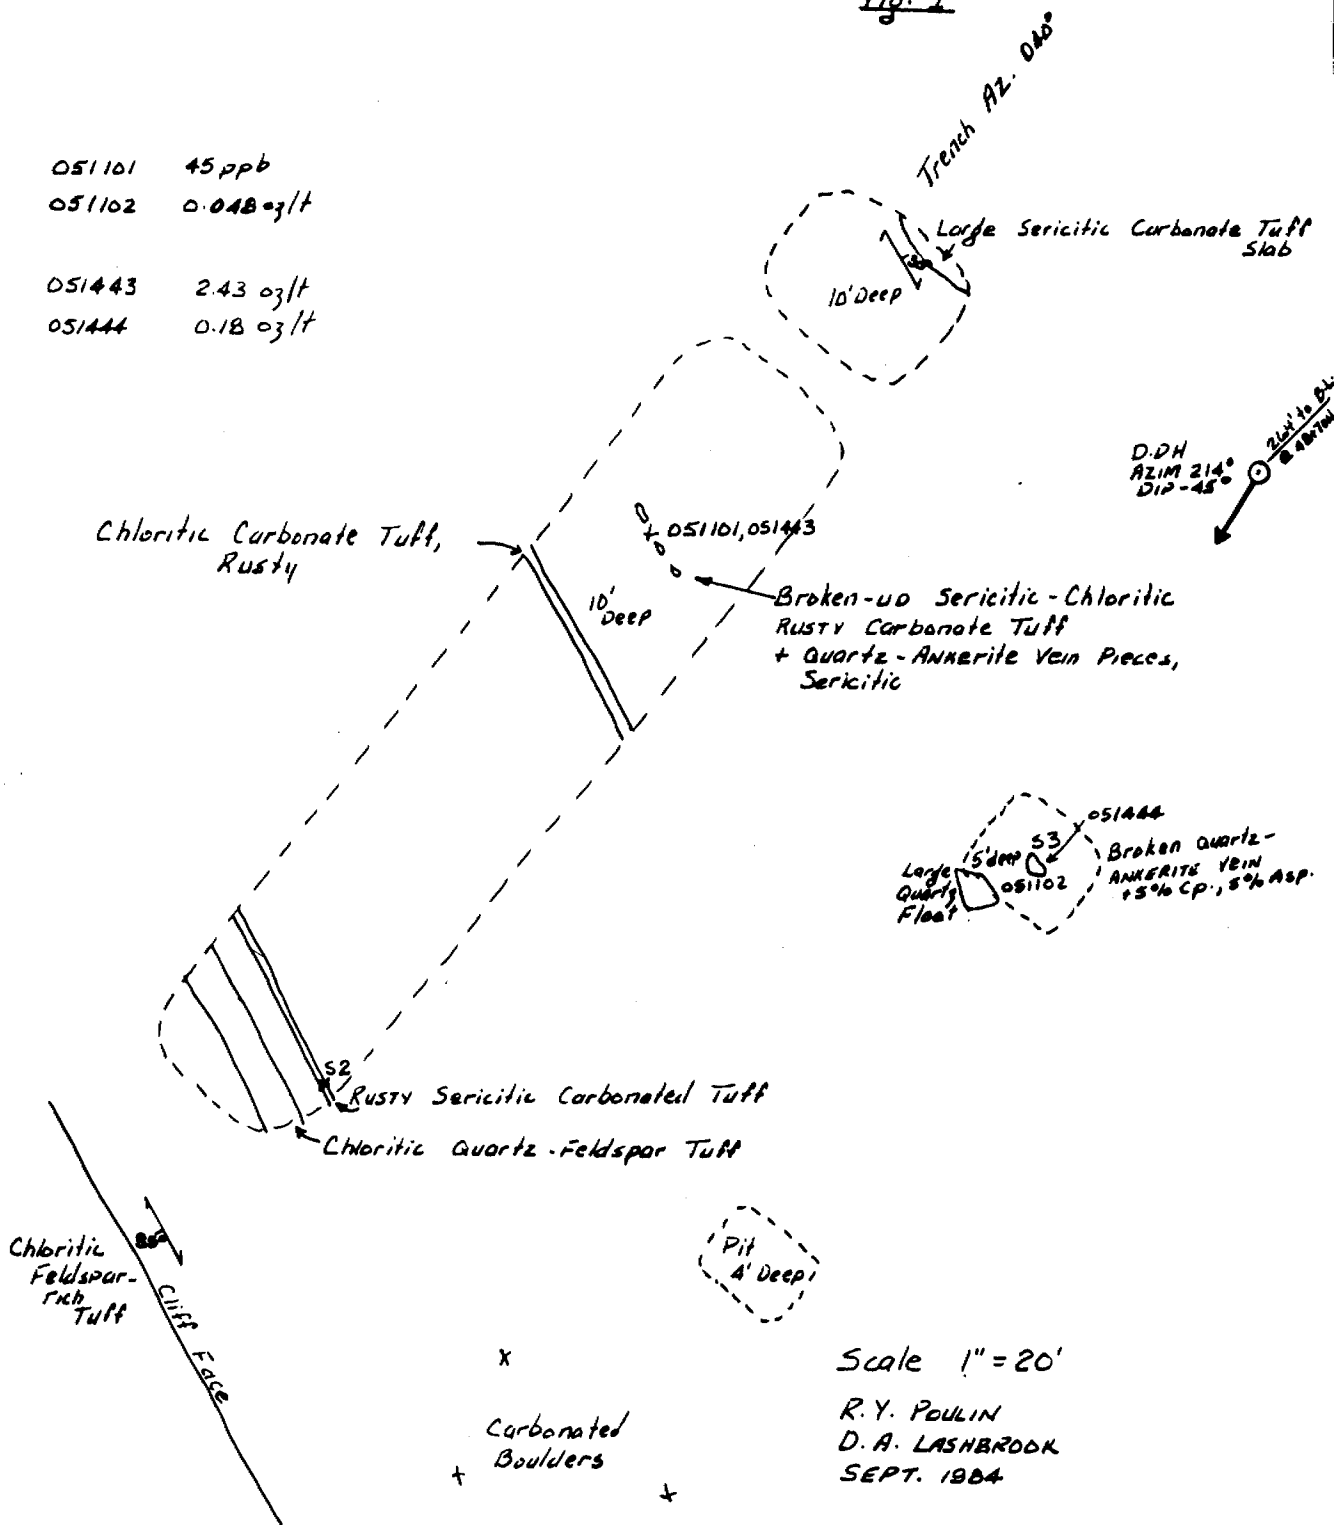 Fig. 1
Trench Az. 040°
051101 45 ppb
051102 0.048 oz/t
051443 2.43 oz/t
051444 0.18 oz/t
Large Sericitic Carbonate Tuff
Slab
10' Deep
D.DH
AZIM 214°
DIP -45°
264' to
Chloritic Carbonate Tuff,
Rusty
051101, 051443
10'
Deep
Broken-up Sericitic-Chloritic
RUSTY Carbonate Tuff
+ Quartz-Ankerite Vein Pieces,
Sericitic
051444
S3
5' deep
051102
Large
Quartz
Float
Broken Quartz-
ANKERITE VEIN
+5% Cp., 5% Asp.
S2
RUSTY Sericitic Carbonated Tuff
Chloritic Quartz-Feldspar Tuff
Chloritic
Feldspar-
rich
Tuff
85°
Cliff Face
Pit
4' Deep
x
Carbonated
Boulders
Scale 1" = 20'
R.Y. POULIN
D.A. LASHBROOK
SEPT. 1984